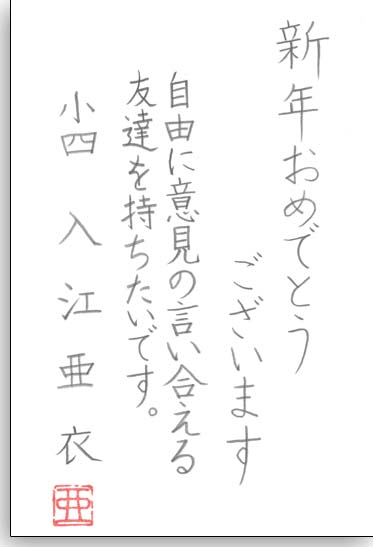 新年おめでとう
ございます
自由に意見の言い合える
友達を持ちたいです。
小四 入江亜衣
亜